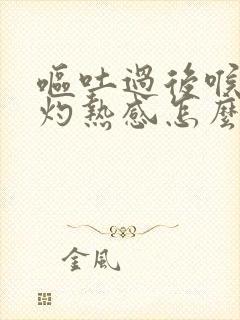 嘔吐過後喉
灼熱感怎麼
金風